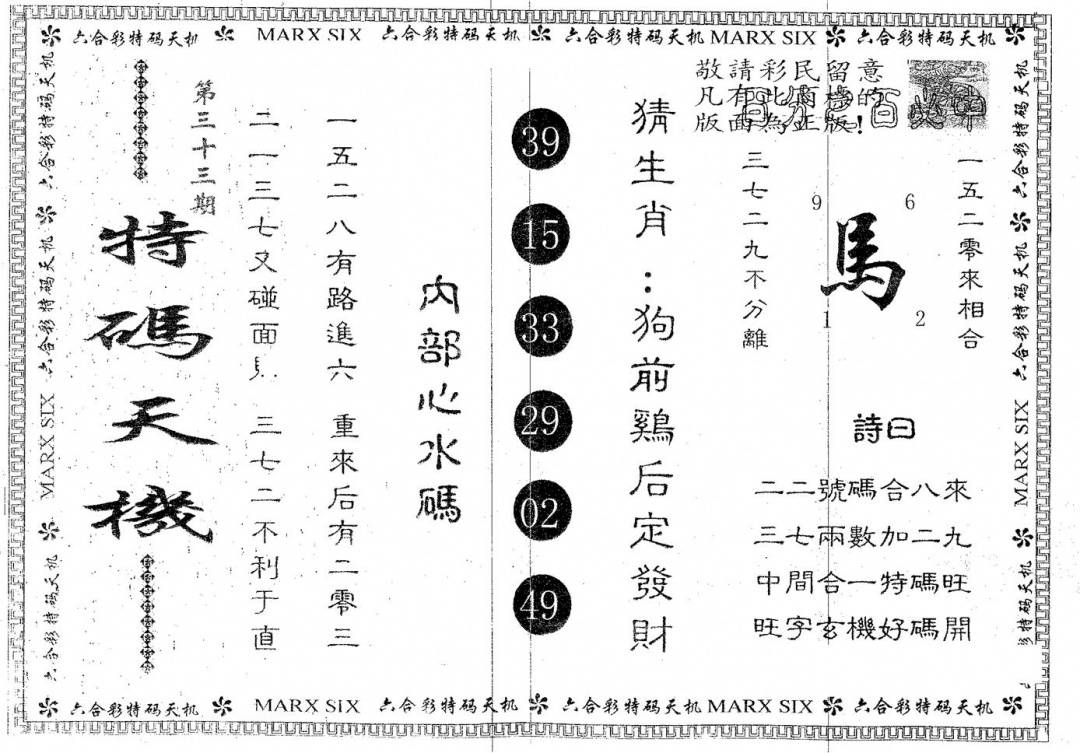 六合彩特码天机 MARX SIX 六合彩特码天机 六合彩特码天机 MARX SIX 六合彩特码天机
敬請彩民留意
凡有此商標的
版面為正版!
一五二零來相合
馬
9 6
1 2
三七二九不分離
詩曰
二二號碼合八來
三七兩數加二九
中間合一特碼旺
旺字玄機好碼開
猜生肖:狗前鷄后定發財
39
15
33
29
02
49
內部心水碼
一五二八有路進六 重來后有二零三
二一三七又碰面 三七二不利于直
第三十三期
特碼天機
六合彩特码天机 六合彩特码天机 六合彩特码天机 MARX SIX 六合彩特码天机
六合彩特码天机 六合彩特码天机 六合彩特码天机 MARX SIX 特码天机
六合彩特码天机 MARX SIX 六合彩特码天机 六合彩特码天机 MARX SIX 六合彩特码天机